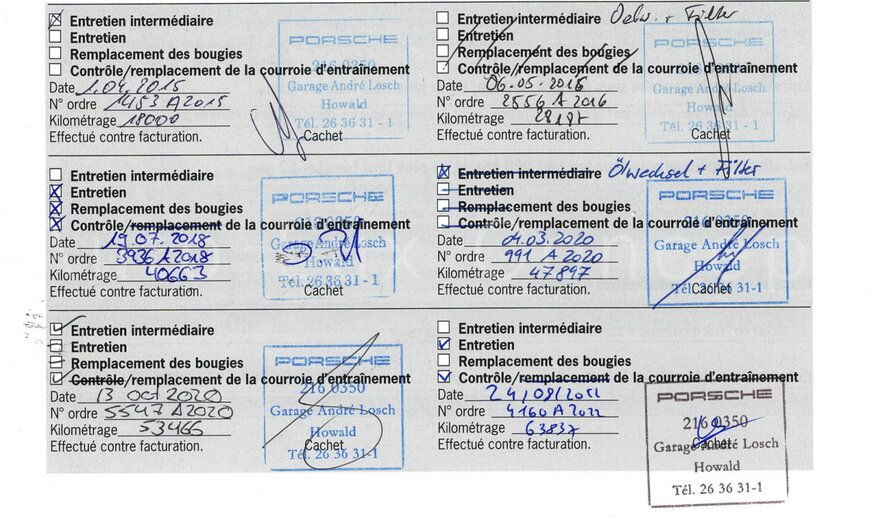 Entretien intermédiaire
Entretien
Remplacement des bougies
Contrôle/remplacement de la courroie d'entraînement
Date 1.04.2015
N° ordre 1453 A2015
Kilométrage 18000
Effectué contre facturation.
Cachet
PORSCHE
216 0350
Garage André Losch
Howald
Tél. 26 36 31 - 1
Entretien intermédiaire Oelw. + Filter
Entretien
Remplacement des bougies
Contrôle/remplacement de la courroie d'entraînement
Date 06.05.2016
N° ordre 2556 A 2016
Kilométrage 28187
Effectué contre facturation.
Cachet
PORSCHE
216 0350
Garage André Losch
Howald
Tél. 26 36 31 - 1
Entretien intermédiaire
Entretien
Remplacement des bougies
Contrôle/remplacement de la courroie d'entraînement
Date 19.07.2018
N° ordre 3936 A2018
Kilométrage 40663
Effectué contre facturation.
Cachet
PORSCHE
216 0350
Garage André Losch
Howald
Tél. 26 36 31 - 1
Entretien intermédiaire Ölwechsel + Filter
Entretien
Remplacement des bougies
Contrôle/remplacement de la courroie d'entraînement
Date 04.03.2020
N° ordre 991 A 2020
Kilométrage 47897
Effectué contre facturation.
Cachet
PORSCHE
216 0350
Garage André Losch
Howald
Tél. 26 36 31-1
Entretien intermédiaire
Entretien
Remplacement des bougies
Contrôle/remplacement de la courroie d'entraînement
Date 13 oct 2020
N° ordre 5547 A2020
Kilométrage 53466
Effectué contre facturation.
Cachet
PORSCHE
216 0350
Garage André Losch
Howald
Tél. 26 36 31-1
Entretien intermédiaire
Entretien
Remplacement des bougies
Contrôle/remplacement de la courroie d'entraînement
Date 24/08/2022
N° ordre 4160 A2022
Kilométrage 63837
Effectué contre facturation.
Cachet
PORSCHE
216 0350
Garage André Losch
Howald
Tél. 26 36 31-1